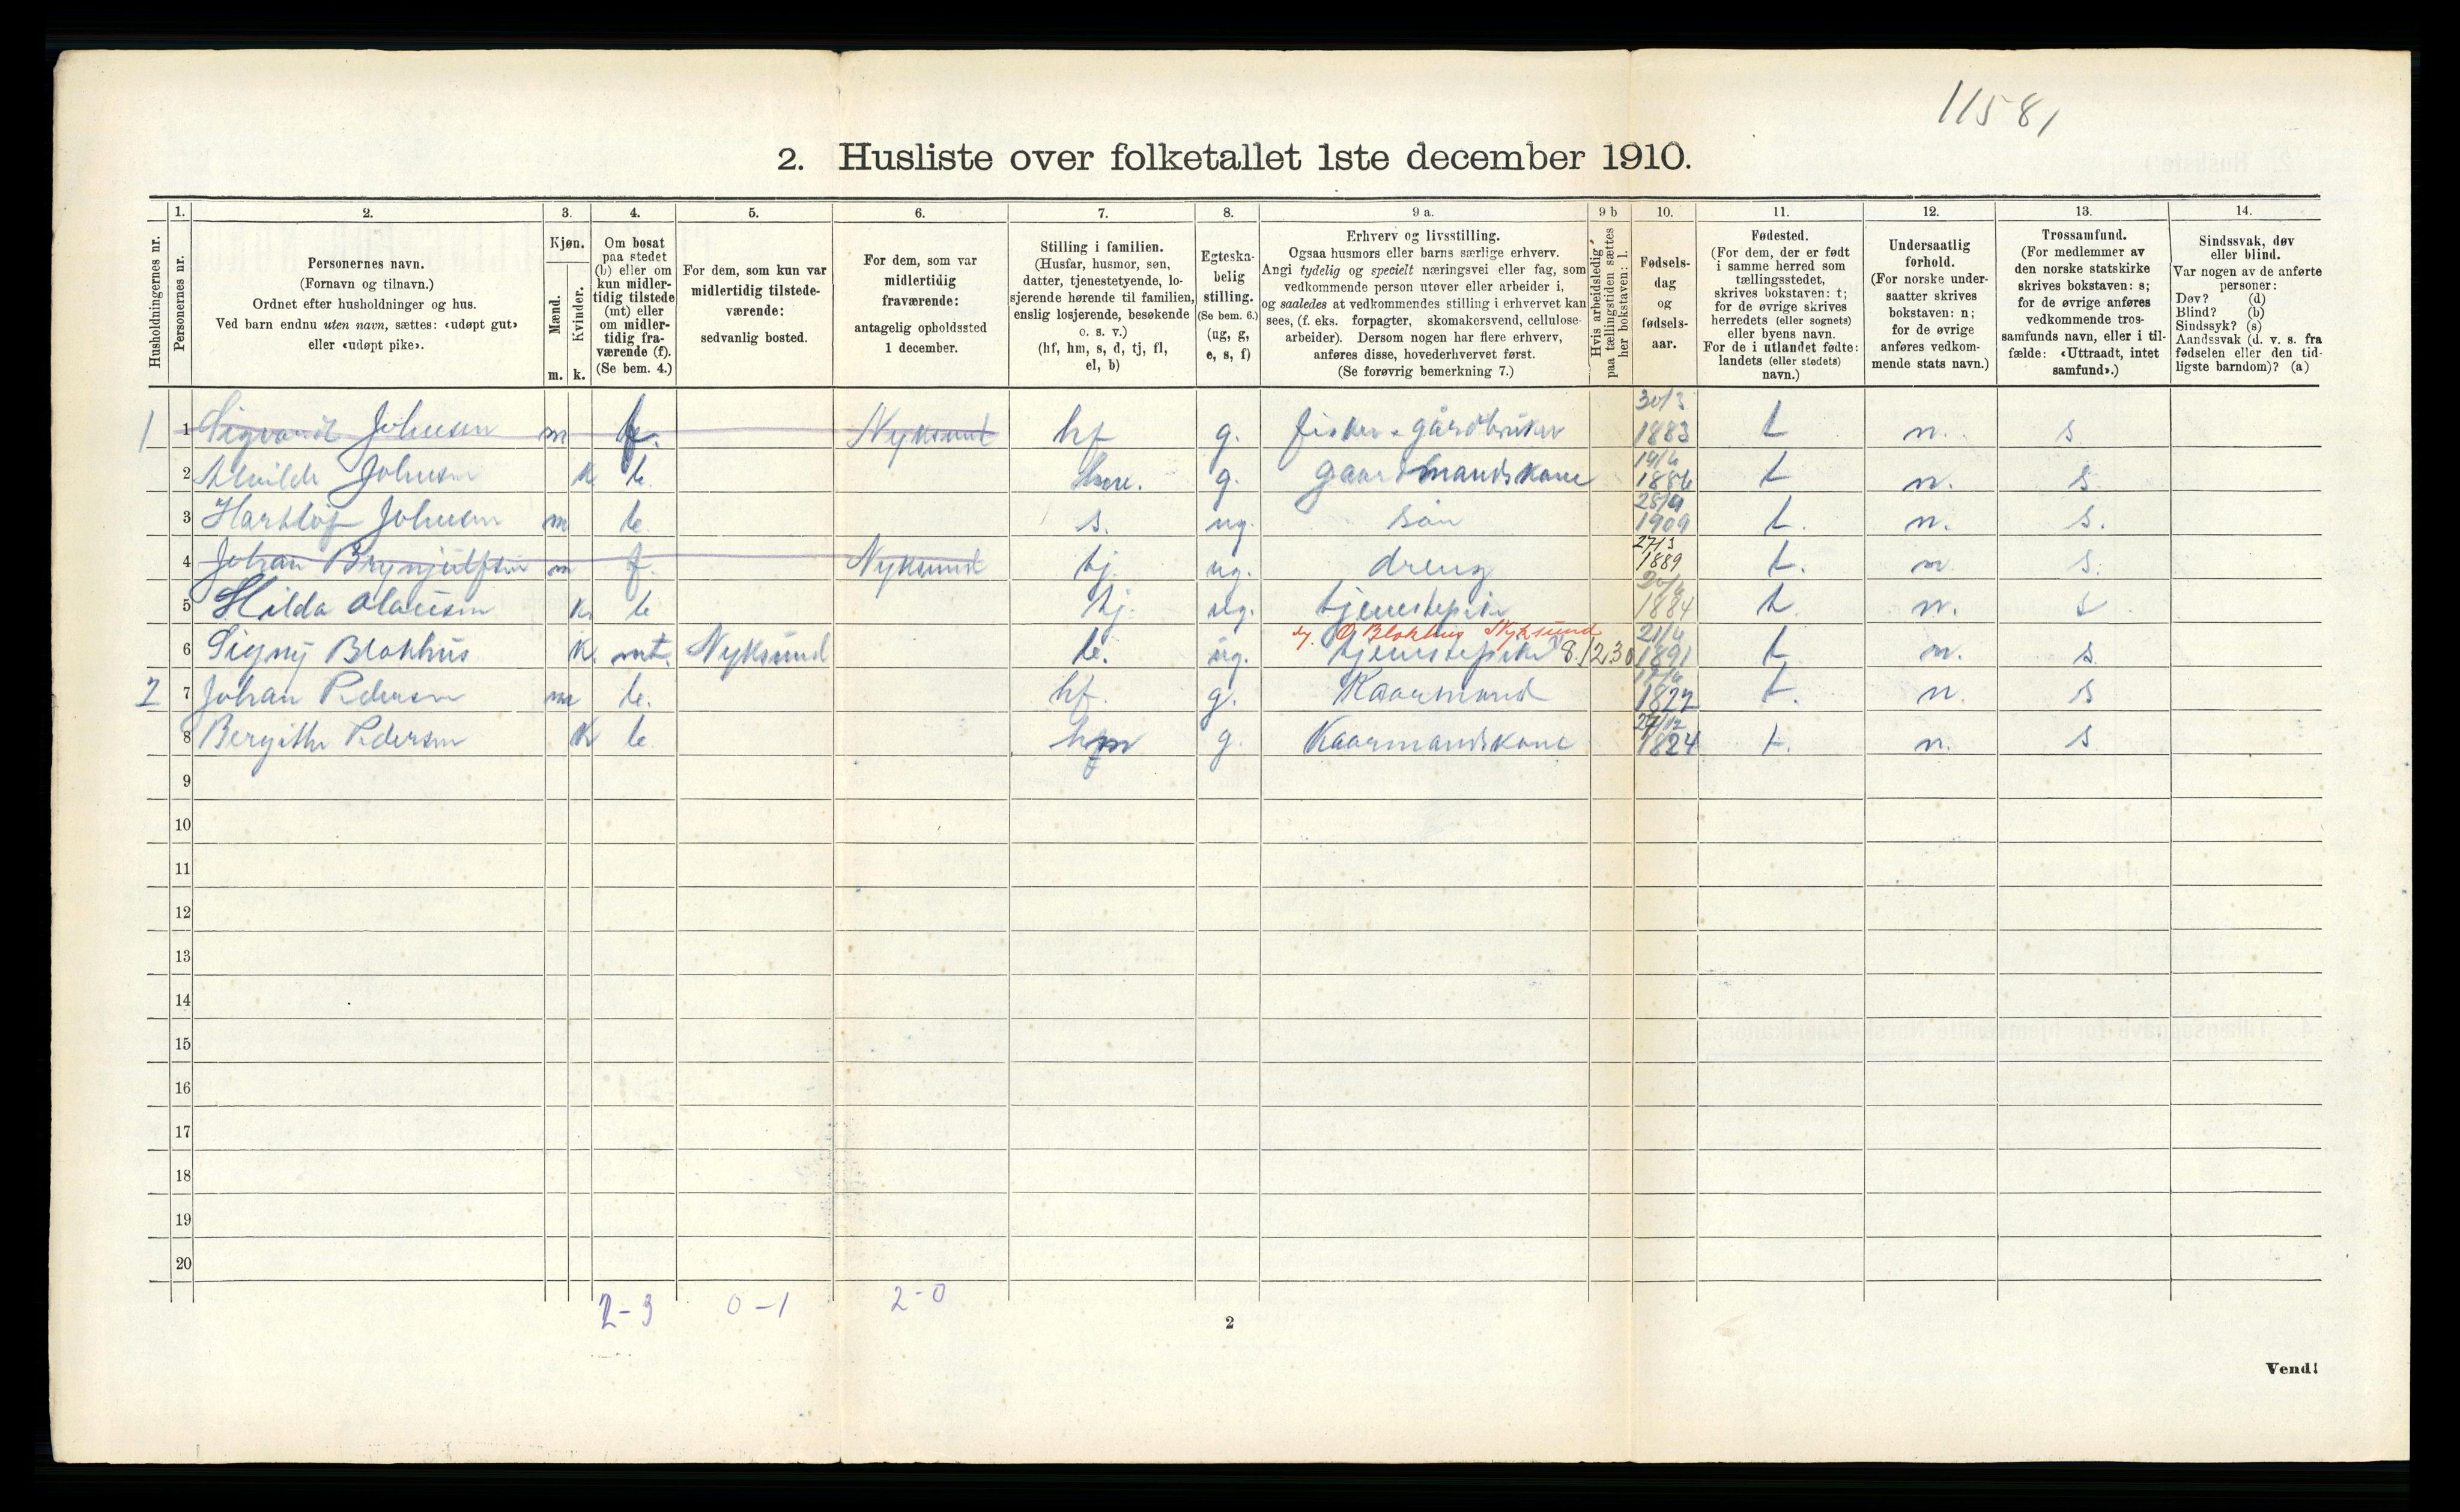 11581
2. Husliste over folketallet 1ste december 1910.
Husholdningernes nr.
1.
Personernes nr.
2.
Personernes navn.
(Fornavn og tilnavn.)
Ordnet efter husholdninger og hus.
Ved barn endnu uten navn, sættes: «udøpt gut»
eller «udøpt pike».
3.
Kjøn.
Mænd.
Kvinder.
m. k.
4.
Om bosat
paa stedet
(b) eller om
kun midler-
tidig tilstede
(mt) eller
om midler-
tidig fra-
værende (f).
(Se bem. 4.)
5.
For dem, som kun var
midlertidig tilstede-
værende:
sedvanlig bosted.
6.
For dem, som var
midlertidig
fraværende:
antagelig opholdssted
1 december.
7.
Stilling i familien.
(Husfar, husmor, søn,
datter, tjenestetyende, lo-
sjerende hørende til familien,
enslig losjerende, besøkende
o. s. v.)
(hf, hm, s, d, tj, fl,
el, b)
8.
Egteska-
belig
stilling.
(Se bem. 6.)
(ug, g,
e, s, f)
9 a.
Erhverv og livsstilling.
Ogsaa husmors eller barns særlige erhverv.
Angi tydelig og specielt næringsvei eller fag, som
vedkommende person utøver eller arbeider i,
og saaledes at vedkommendes stilling i erhvervet kan
sees, (f. eks. forpagter, skomakersvend, cellulose-
arbeider). Dersom nogen har flere erhverv,
anføres disse, hovederhvervet først.
(Se forøvrig bemerkning 7.)
9 b
Hvis arbeidsledig
paa tællingstiden sættes
her bokstaven: l.
10.
Fødsels-
dag
og
fødsels-
aar.
11.
Fødested.
(For dem, der er født
i samme herred som
tællingsstedet,
skrives bokstaven: t;
for de øvrige skrives
herredets (eller sognets)
eller byens navn.
For de i utlandet fødte:
landets (eller stedets)
navn.)
12.
Undersaatlig
forhold.
(For norske under-
saatter skrives
bokstaven: n;
for de øvrige
anføres vedkom-
mende stats navn.)
13.
Trossamfund.
(For medlemmer av
den norske statskirke
skrives bokstaven: s;
for de øvrige anføres
vedkommende tros-
samfunds navn, eller i til-
fælde: «Uttraadt, intet
samfund».)
14.
Sindssvak, døv
eller blind.
Var nogen av de anførte
personer:
Døv? (d)
Blind? (b)
Sindssyk? (s)
Aandssvak (d. v. s. fra
fødselen eller den tid-
ligste barndom)? (a)
1 1 Sigvardt Johnsen m f. Nyksund hf g. fisker & gårdbruker 30/3 1883 t n. s
2 Johnsen k b. g. gaardmandskone 1886 t n. s.
3 Hartløf Johnsen m b. s. ug. søn 1909 t. n. s.
4 Johan Brynjulfsen m f. Nyksund tj. ug. dreng 27/3 1889 t. n. s.
5 Hilda Olausen k. b tj. ug. tjenestepike 1884 t. n. s
O Blokhus Nyksund
6 Signy Blokhus k. mt. Nyksund b. ug. tjenestepike 8.1230 21/4 1891 t n. s.
2 7 Johan Pedersen m b. hf. g. Kaarmand 1827 t. n. s
8 Bergithe Pedersen k b. g. Kaarmandskone 1824 t. n. s
9
10
11
12
13
14
15
16
17
18
19
20
2-3 0-1 2-0
2
Vend!